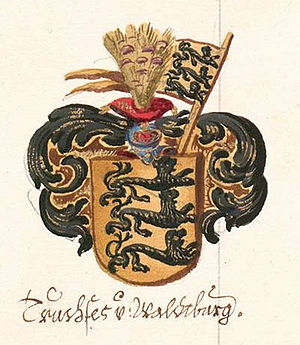 Truchses v. Waldtburg.